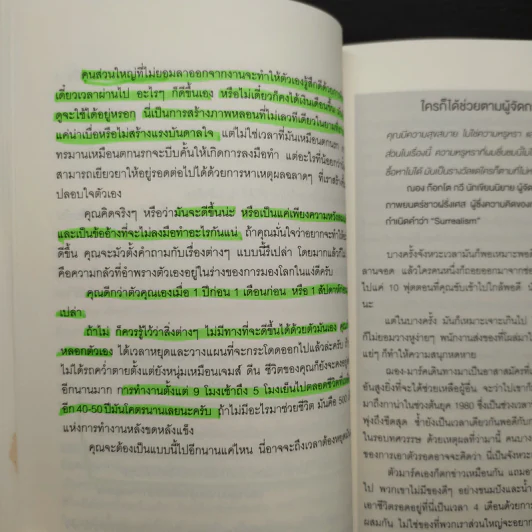 คนส่วนใหญ่ที่ไม่ยอมลาออกจากงานจะทำให้ตัวเองรู้สึกดีด้วย
เดี๋ยวเวลาผ่านไป อะไรๆ ก็ดีขึ้นเอง หรือไม่เดี๋ยวก็คงได้เงินเดือนขึ้น
ดูจะใช้ได้อยู่หรอก นี่เป็นการสร้างภาพหลอนที่ไม่เลวทีเดียวใน
แค่น่าเบื่อหรือไม่สร้างแรงบันดาลใจ แต่ไม่ใช่เวลาที่มันเหมือนตกนรก
ทรมานเหมือนตกนรกจะบีบคั้นให้เกิดการลงมือทำ แต่อะไรที่น้อยกว่า
สามารถเยียวยาให้อยู่รอดต่อไปได้ด้วยการหาเหตุผลฉลาดๆ ที่เรา
ปลอบใจตัวเอง
คุณคิดจริงๆ หรือว่ามันจะดีขึ้นน่ะ หรือเป็นแค่เพียงความ
และเป็นข้ออ้างที่จะไม่ลงมือทำอะไรกันแน่ ถ้าคุณมั่นใจว่าอยากจะทำให้
ดีขึ้น คุณจะมัวตั้งคำถามกับเรื่องต่างๆ แบบนี้รึเปล่า โดยมากแล้ว
คือความกลัวที่อำพรางตัวเองอยู่ในร่างของการมองโลกในแง่ดีครับ
คุณดีกว่าตัวคุณเองเมื่อ 1 ปีก่อน 1 เดือนก่อน หรือ 1 สัปดาห์
เปล่า
ถ้าไม่ ก็ควรรู้ไว้ว่าสิ่งต่างๆ ไม่มีทางที่จะดีขึ้นได้ด้วยตัวมันเอง
หลอกตัวเอง ได้เวลาหยุดและวางแผนที่จะกระโดดออกไปแล้วล่ะครับ
ไม่ได้รถคว่ำตายตั้งแต่ยังหนุ่มเหมือนเจมส์ ดีน ชีวิตของคุณก็ยังจะคง
อีกนานมาก การทำงานตั้งแต่ 9 โมงเช้าถึง 5 โมงเย็นไปตลอดชีวิต
อีก 40-50 ปีมันโคตรนานเลยนะครับ ถ้าไม่มีอะไรมาช่วยชีวิต มันคือ 500
แห่งการทำงานหลังขดหลังแข็ง
คุณจะต้องเป็นแบบนี้ไปอีกนานแค่ไหน นี่อาจจะถึงเวลาต้อง
ใครก็ได้ช่วยตามผู้จัดก
คุณมีความสุขสบาย ไม่ใช่ความหรูหรา
ซื้อหาไม่ได้
ณอง ก็อกโต กวี นักเขียนนิยาย
ภาพยนตร์ชาวฝรั่งเศส ผู้ซึ่งความคิดของ
กำเนิดคำว่า "Surrealism"
บางครั้งจังหวะเวลามันก็พอเหมาะพอ
ลานจอด แล้วใครคนหนึ่งก็ถอยออกมาจาก
ไปแค่ 10 ฟุตตอนที่คุณขับเข้าไปใกล้พอดี
นะ
แต่ในบางครั้ง มันก็เหมาะเจาะเกินไป
ก็ไม่ยอมวางหูง่ายๆ พนักงานส่งของที่โผล่มา
แย่ๆ ก็ทำความสนุกหดหาย
ฌอง-มาร์คเดินทางมาเป็นอาสาสมัคร
อันสูงยิ่งที่จะได้ช่วยเหลือผู้อื่น จะว่าไปเขา
มาถึงกาน่าในช่วงต้นยุค 1980 ซึ่งเป็นช่วง
พุ่งถึงขีดสุด ซ้ำยังเป็นเวลาเดียวกันพอดีกับ
ในรอบทศวรรษ ด้วยเหตุผลที่ว่ามานี้ คนบาง
ของการเอาตัวรอดอาจจะคิดว่า นี่เป็นจังหวะ
ตัวมาร์คเองก็ตกข่าวเหมือนกัน
ไป พวกเขาไม่มีของดีๆ อย่างขนมปังและน้ำ
เอาชีวิตรอดอยู่ที่นี่เป็นเวลา 4 เดือนด้วยการ
ผสมกัน ไม่ใช่ของที่พวกเราส่วนใหญ่จะ